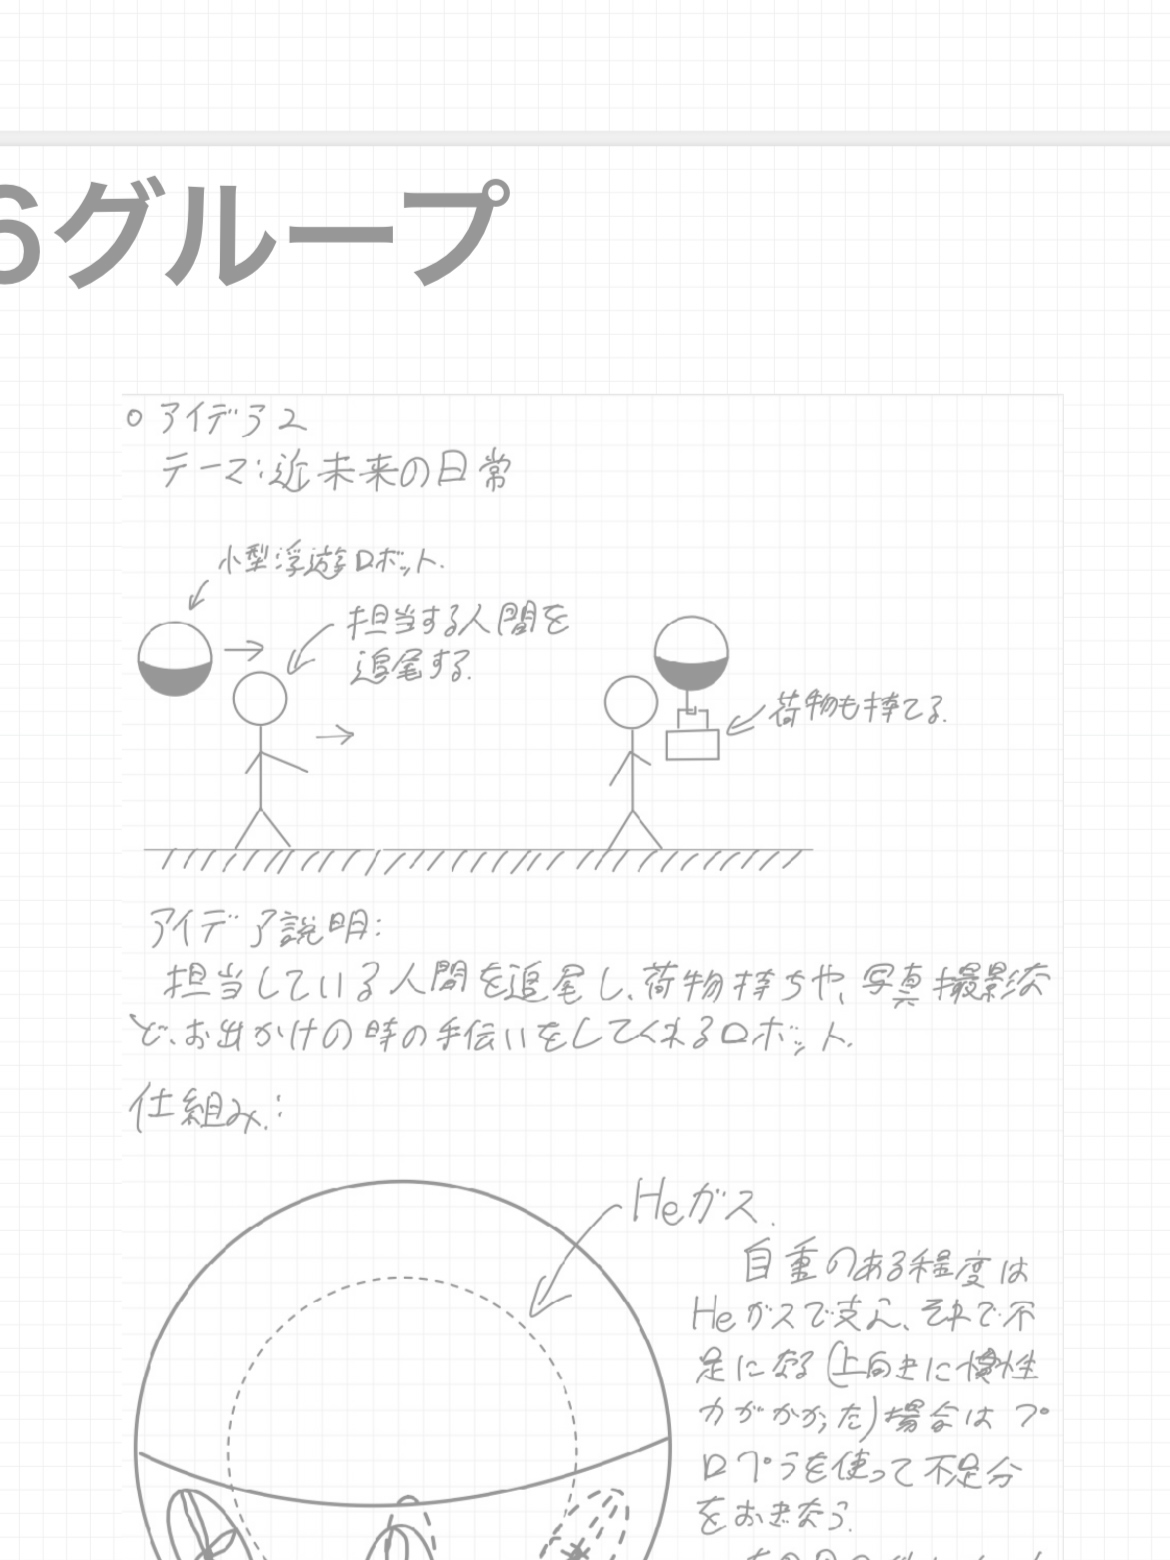 6グループ
○ アイデア2
テーマ:近未来の日常
小型浮遊ロボット.
担当する人間を
追尾する.
荷物も持てる.
アイデア説明:
担当している人間を追尾し、荷物持ちや、写真撮影な
ど、お出かけの時の手伝いをしてくれるロボット.
仕組み:
Heガス.
自重のある程度は
Heガスで支え、それで不
足になる(上向きに慣性
力がかかった)場合はプ
ロペラを使って不足分
をおぎなう.